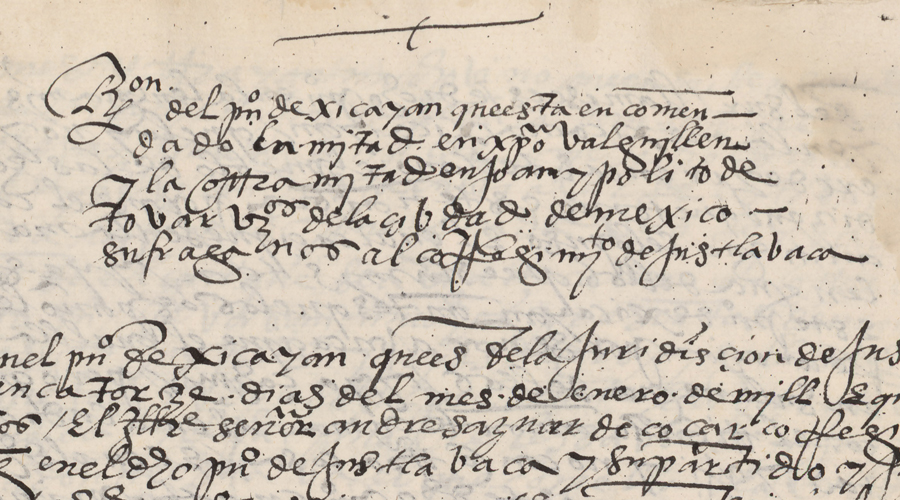 Ron
del pu° de xicayan que esta en comen
dado la mitad en xpo valguillen
y la otra mitad en Joan ypolito de
tovar vzos de la çibdad de mexico
sufraganos al corregimyto de Justlabaca
nel pu° de xicayan ques de la Juridisçion de Jus
en catorze dias del mes de enero de mill E qu
os / El Illre señor andres aznar de cocar corregi
en el dho pu° de Justlabaca y su partido y